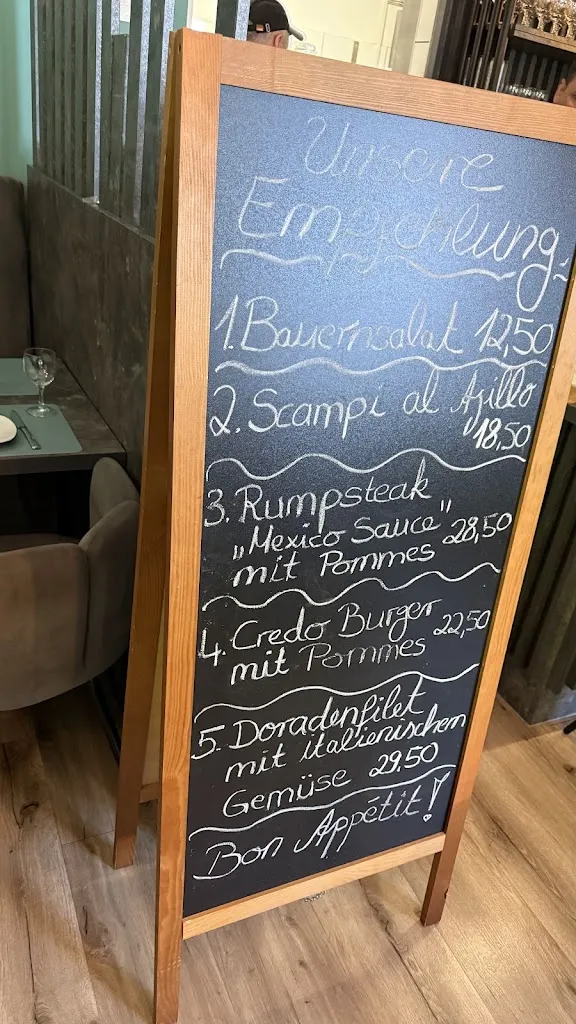 Unsere
Empfehlung
1. Bauernsalat 12,50
2. Scampi al Ajillo
18,50
3. Rumpsteak
„Mexico Sauce"
mit Pommes 28,50
4. Credo Burger
mit Pommes 22,50
5. Doradenfilet
mit italienischen
Gemüse 29.50
Bon Appétit!